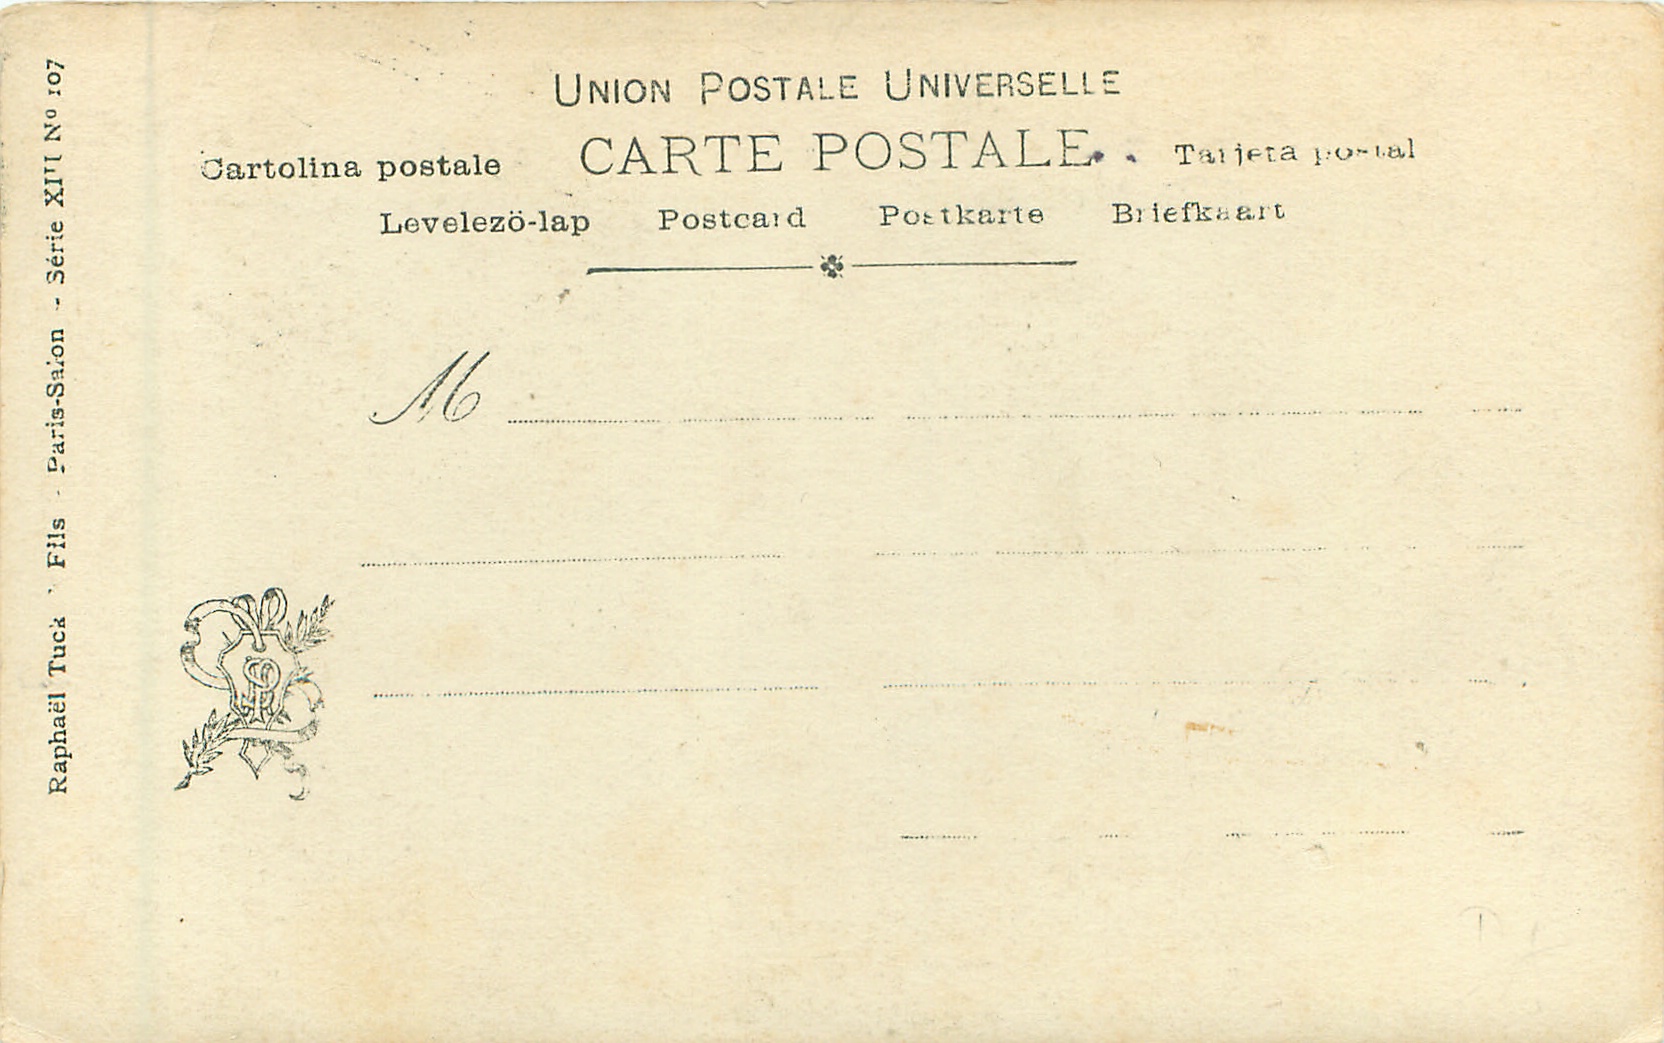 UNION POSTALE UNIVERSELLE
CARTE POSTALE
Cartolina postale
Tarjeta postal
Levelezö-lap Postcard Postkarte Briefkaart
M
Raphaël Tuck Fils - Paris-Salon - Série XIII Nº 107